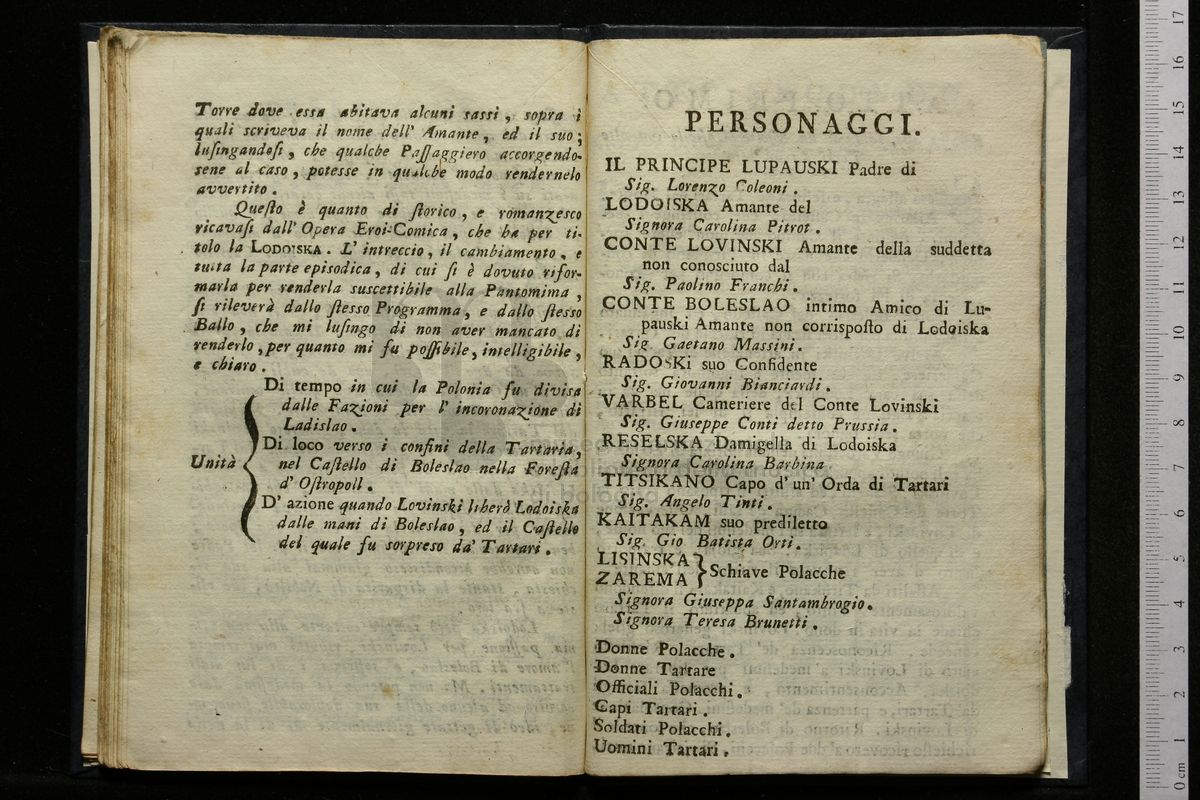 Torre dove essa abitava alcuni sassi, sopra i
quali scriveva il nome dell' Amante, ed il suo;
lusingandosi, che qualche Passaggiero accorgendo-
sene al caso, potesse in qualche modo rendernelo
avvertito.
Questo è quanto di storico, e romanzesco
ricavasi dall' Opera Eroi-Comica, che ha per ti-
tolo la LODOISKA. L' intreccio, il cambiamento, e
tutta la parte episodica, di cui si è dovuto rifor-
marla per renderla suscettibile alla Pantomima,
si rileverà dallo stesso Programma, e dallo stesso
Ballo, che mi lusingo di non aver mancato di
renderlo, per quanto mi fu possibile, intelligibile,
e chiaro.
Di tempo in cui la Polonia fu divisa
dalle Fazioni per l' incoronazione di
Ladislao.
Unità
Di loco verso i confini della Tartaria,
nel Castello di Boleslao nella Foresta
d' Ostropoll.
D' azione quando Lovinski liberò Lodoiska
dalle mani di Boleslao, ed il Castello
del quale fu sorpreso da' Tartari.
PERSONAGGI.
IL PRINCIPE LUPAUSKI Padre di
Sig. Lorenzo Coleoni.
LODOISKA Amante del
Signora Carolina Pitrot.
CONTE LOVINSKI Amante della suddetta
non conosciuto dal
Sig. Paolino Franchi.
CONTE BOLESLAO intimo Amico di Lu-
pauski Amante non corrisposto di Lodoiska
Sig. Gaetano Massini.
RADOSKI suo Confidente
Sig. Giovanni Bianciardi.
VARBEL Cameriere del Conte Lovinski
Sig. Giuseppe Conti detto Prussia.
RESELSKA Damigella di Lodoiska
Signora Carolina Barbina
TITSIKANO Capo d' un' Orda di Tartari
Sig. Angelo Tinti.
KAITAKAM suo prediletto
Sig. Gio Batista Orti.
LISINSKA
ZAREMA
Schiave Polacche
Signora Giuseppa Santambrogio.
Signora Teresa Brunetti.
Donne Polacche.
Donne Tartare
Officiali Polacchi.
Capi Tartari.
Soldati Polacchi.
Uomini Tartari.
0 cm 1 2 3 4 5 6 7 8 9 10 11 12 13 14 15 16 17